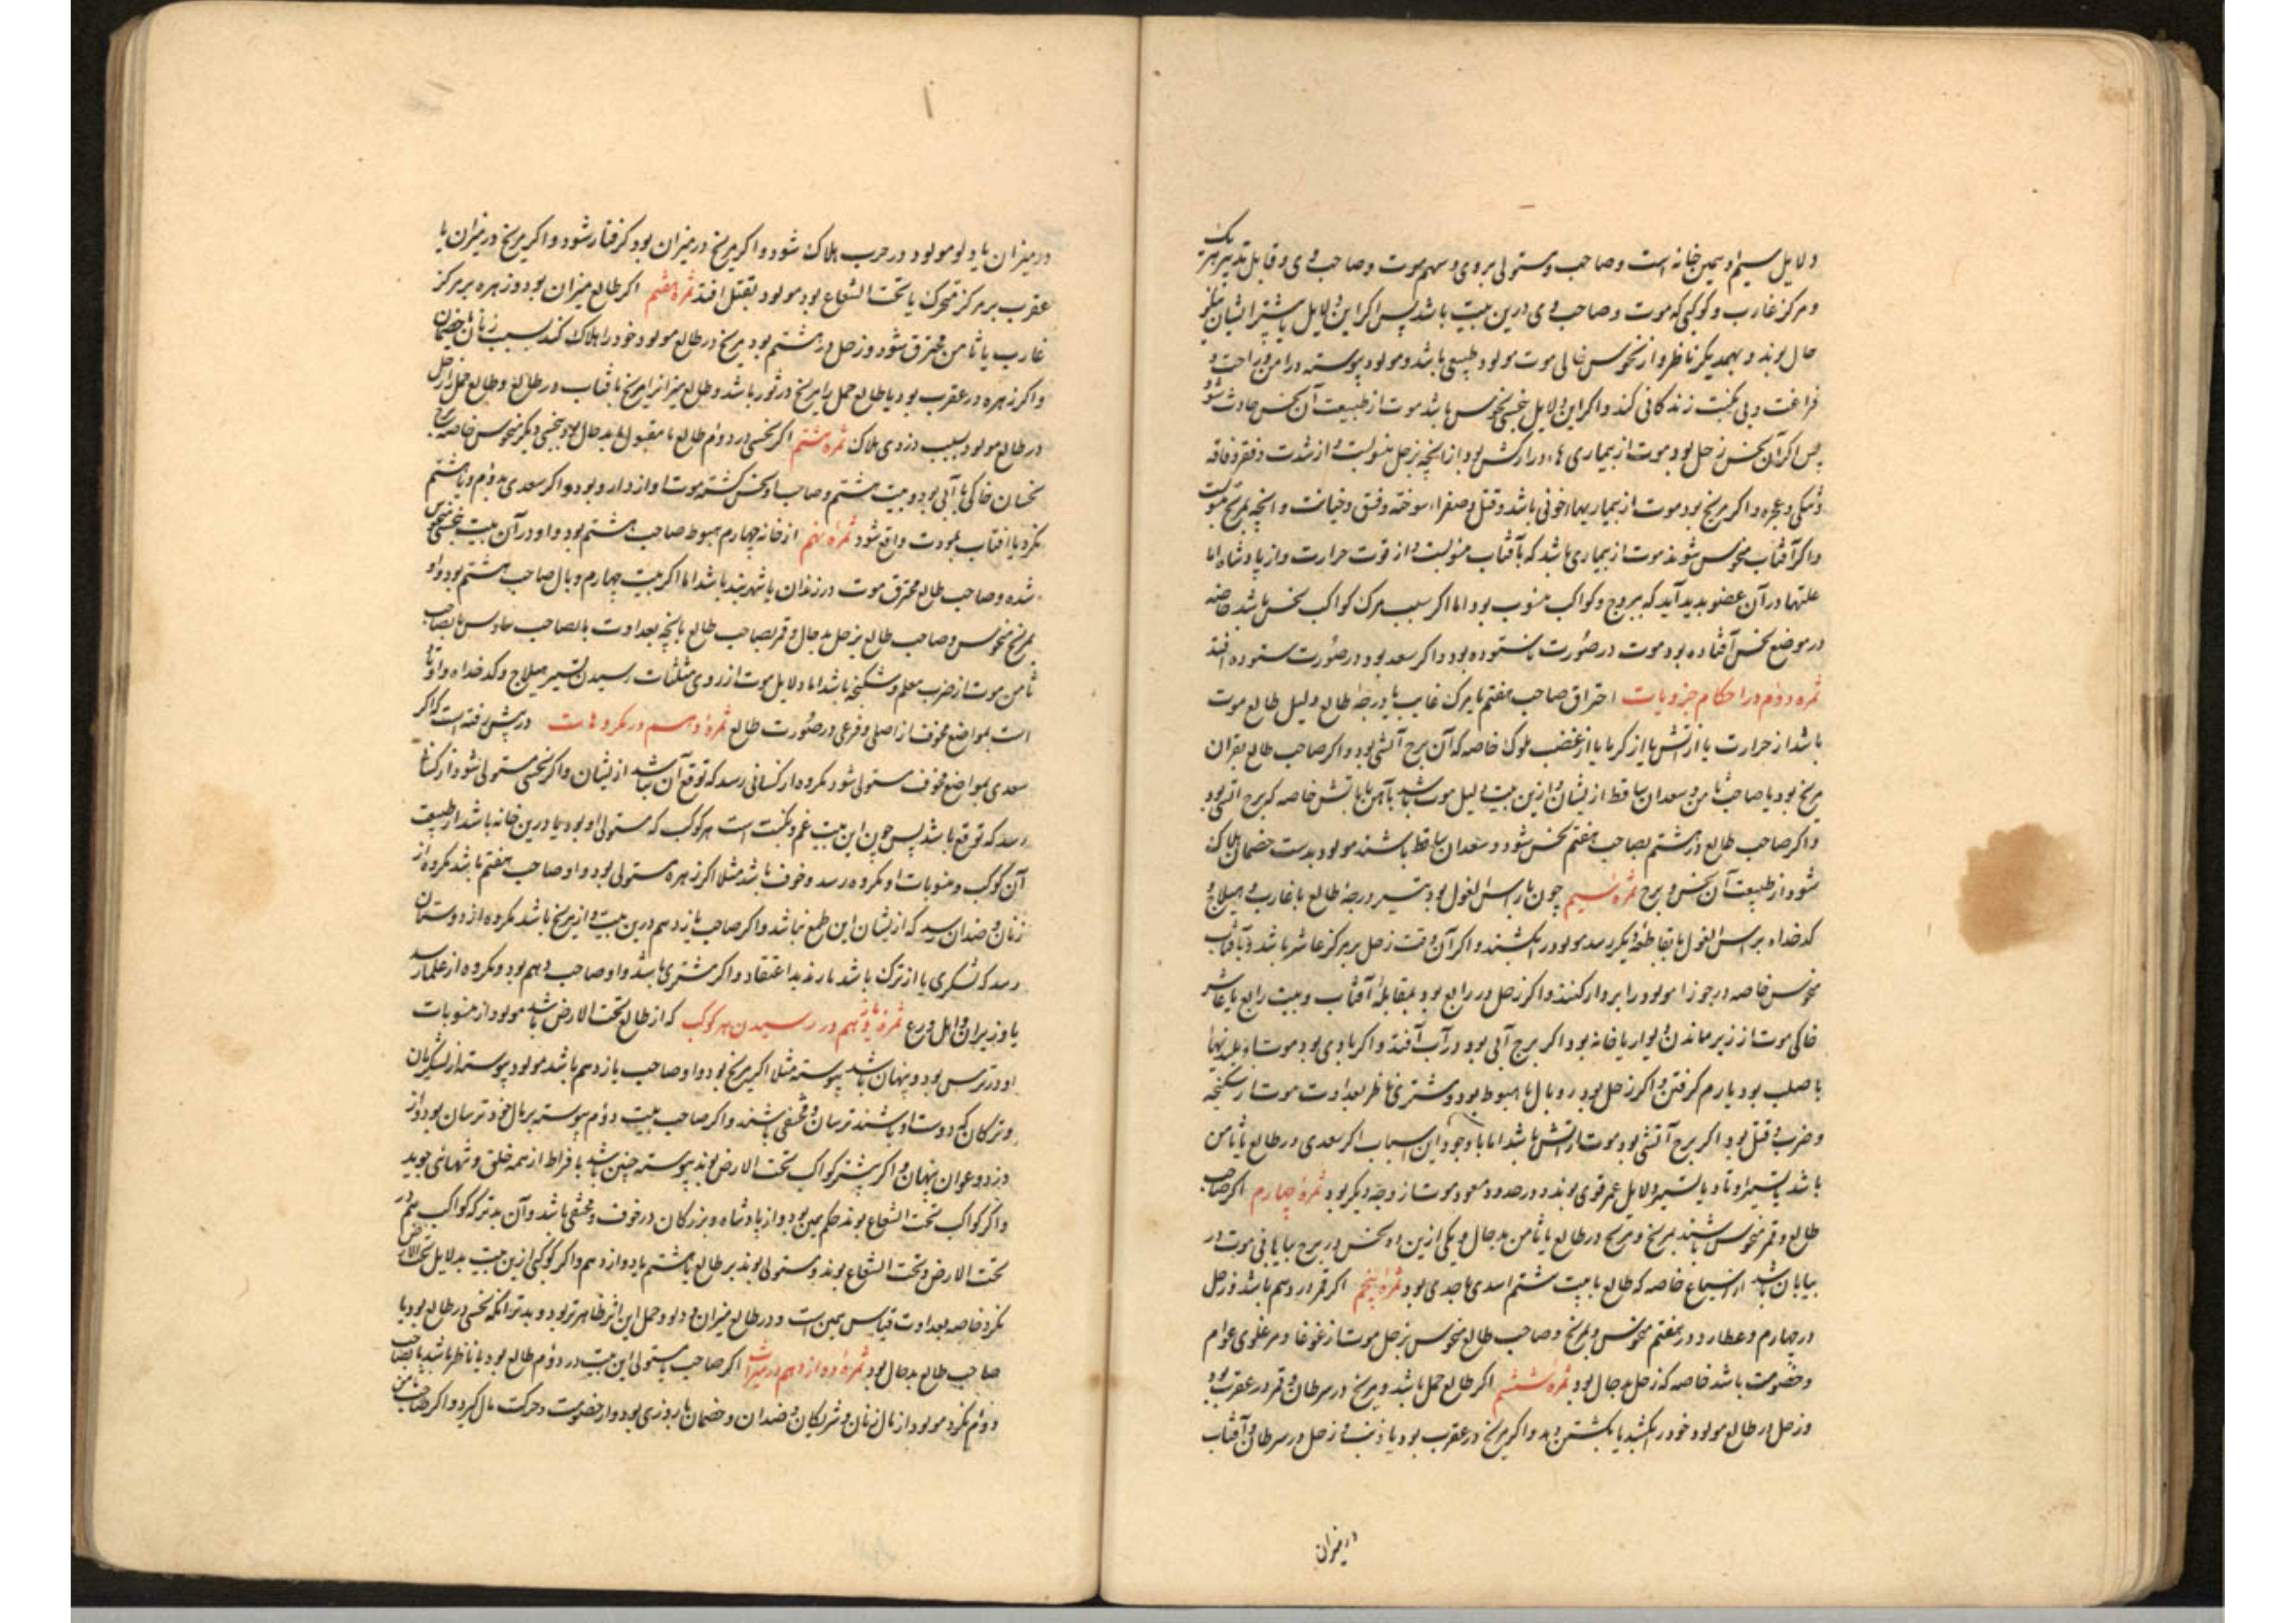 دلایل سیم اوهمین خانه است وصاحب ومستولی بروی وسهم موت وصاحب وی وقابل تدبیر هر یک
ومرکز غارب وکوکبی که موت وصاحب وی درین بیت باشد پس اکر این دلایل یا بیشتر ایشان نیکو
حال بوند وبهمدیکر ناظر واز نحوس خالی موت مولود طبیعی باشد ومولود پیوسته در امن وراحت و
فراغت وبی نکبت زندکانی کند واکر این دلایل بنحسی منحوس باشد موت از طبیعت آن نحس حادث شود
پس اکر آن نحس زحل بود موت از بیماری هاء دراز کش بود از آنچه بزحل منسوبست واز شدت وفقر وفاقه
واکر مریخ بود موت از بیماریهاء خونی باشد وقتل وصفراء سوخته وفسق وخیانت وآنچه بمریخ منسوبست
واکر آفتاب منحوس شوند موت از بیماری باشد که بآفتاب منسوبست واز قوت حرارت واز پادشاه اما
علتها در آن عضو پدید آید که ببروج وکواکب منسوب بود اما اکر سبب مرک کواکب نحس باشد خاصه
در موضع نحس آفتاده بود موت در صورت ناستوده بود واکر سعد بود در صورت ستوده افتد
ثمره دوم در احکام جزویات احتراق صاحب هفتم یا مرکز غارب یا درجه طالع ودلیل طالع موت
باشد از حرارت یا از آتش یا از کرما یا از غضب ملوک خاصه که آن برج آتشی بود واکر صاحب طالع بقران
مریخ بود یا صاحب ثامن وسعدان ساقط از ایشان وازین بیت دلیل موت باشد بآهن یا بآتش خاصه که برج آتشی بود
واکر صاحب طالع در هشتم بصاحب هفتم نحس شود وسعدان ساقط باشند مولود بدست خصمان هلاک
شود از طبیعت آن نحس وبرج ثمره سیم چون با راس الغول بود بتسیر درجه طالع یا غارب وهیلاج و
کدخداه براس الغول یا بقاطعه دیکر رسد مولود را بکشند واکر آن وقت زحل بر مرکز عاشر باشد وآفتاب
منحوس خاصه در جوزا مولود را بر دار کنند واکر زحل در رابع بود بمقابله آفتاب وبیت رابع یا عاشر
خاکی موت از زیر ماندن دیوار یا خانه بود اکر برج آبی بود در آب آفتد واکر بادی بود موت از بلندیها
یا صلب بود یا دم کرفتن واکر زحل بود در وبال یا هبوط بود ومشتری ناظر بعداوت موت از شکنجه
وضرب وقتل بود اکر برج آتشی بود موت از آتش باشد اما با وجود این اسباب اکر سعدی در طالع یا ثامن
باشد یا بتسیر اوتاد یا بتسیر دلایل عمر قوی بوند ودر حدود سعود موت از وجه دیکر بود ثمره چهارم اکر صاحب
طالع وقمر منحوس باشند بمریخ ومریخ در طالع یا ثامن بدحال ویکی ازین دو نحس در برج بیابانی موت در
بیابان باشد از سباع خاصه که طالع یا بیت هشتم اسد یا جدی بود ثمره پنجم اکر قمر در دهم باشد وزحل
در چهارم وعطارد در هفتم منحوس بمریخ وصاحب طالع منحوس بزحل موت از غوغا ومر غلوی عوام
وخصومت باشد خاصه که زحل بدحال بود ثمره ششم اکر طالع حمل باشد ومریخ در سرطان وقمر در عقرب بود
وزحل در طالع مولود خود را بکشد یا بکشتن دهد واکر مریخ در عقرب بود یا ذنب وزحل در سرطان وآفتاب
در میزان
در میزان یا دلو مولود در حرب هلاک شود واکر مریخ در میزان بود کرفتار شود واکر مریخ در میزان یا
عقرب بر مرکز متحرک یا تحت الشعاع بود مولود بقتل افتد ثمره هفتم اکر طالع میزان بود وزهره بر مرکز
غارب یا ثامن محترق شود وزحل در هشتم بود مریخ در طالع مولود خود را هلاک کند بسبب زنان یا خصمان
واکر زهره در عقرب بود یا طالع حمل را مریخ در ثور باشد وطالع میزان را مریخ یا آفتاب در طالع وطالع حمل را زحل
در طالع مولود بسبب دزدی هلاک ثمره هشتم اکر نحسی در دوم طالع نا مقبول یا بدحال بود بنحسی دیکر منحوس خاصه
نحسان خاکی یا آبی بود وبیت هشتم وصاحب او نحس کشته موت او از دارو بود واکر سعدی بدوم ویا هشتم
نکرد یا آفتاب بمودت واقع شود ثمره نهم از خانه چهارم هبوط صاحب هشتم بود واو در آن بیت بنحسی منحوس
شده وصاحب طالع محترق موت در زندان یا شهربند باشد اما اکر بیت چهارم وبال صاحب هشتم بود واو
بمریخ منحوس وصاحب طالع بزحل بدحال وقمر بصاحب طالع بعداوت یا بصاحب سادس یا بصاحب
ثامن موت از ضرب معلم وشکنجه باشد اما دلایل موت از روی مثلثات رسیدن تسیر هیلاج وکدخداه واوتاد
است بمواضع مخوف از اصلی وفرعی در صورت طالع ثمره دهم در مکروهات در پیش رفته است که اکر
سعدی بمواضع مخوف مستولی شود مکروه از کسانی رسد که توقع آن نباشد از یشان واکر نحسی مستولی شود از کسان
رسد که توقع باشد پس چون این بیت غم ونکبت است هر کوکب که مستولی او بود یا درین خانه باشد از طبیعت
آن کوکب ومنسوبات او مکروه رسد وخوف باشد مثلا اکر زهره مستولی بود واو صاحب هفتم باشد مکروه از
زنان وضدان رسد که از یشان این طمع نباشد واکر صاحب یازدهم درین بیت از مریخ باشد مکروه از دوستان
رسد که لشکری یا از ترک باشد یا رند بداعتقاد واکر مشتری باشد واو صاحب دهم بود مکروه از علما رسد
یا وزیران واهل ورع ثمره یازدهم در رسیدن هر کوکب که از طالع تحت الارض باشد مولود از منسوبات
او در ترس بود وپنهان باشد پیوسته مثلا اکر مریخ بود واو صاحب یازدهم باشد مولود پیوسته از لشکریان
وترکان که دوست او باشند ترسان ومخفی باشد واکر صاحب بیت دوم پیوسته بر مال خود ترسان بود واز
دزد وعوان پنهان واکر بیشتر کواکب تحت الارض بوند پیوسته چنین باشد بافراط از همه خلق وتنهائی جوید
واکر کواکب تحت الشعاع بوند حکم همین بود واز پادشاه وبزرکان در خوف ومخفی باشد وآن بدتر که کواکب هم در
تحت الارض وتحت الشعاع بوند ومستولی بوند بر طالع یا هشتم یا دوازدهم واکر کوکبی ازین بیت بدلایل تحت الارض
نکرد خاصه بعداوت قیاس همین است ودر طالع میزان ودلو وحمل این اثر ظاهرتر بود وبدتر آنکه نحسی در طالع بود یا
صاحب طالع بدحال بود ثمره دوازدهم در میراث اکر صاحب یا مستولی این بیت در دوم طالع بود یا ناظر باشد یا بصاحب
دوم نکرد مولود از مال زنان وشریکان وضدان وخصمان باروزی بود واز خصومت وحرکت مال کیرد واکر صاحب ثامن